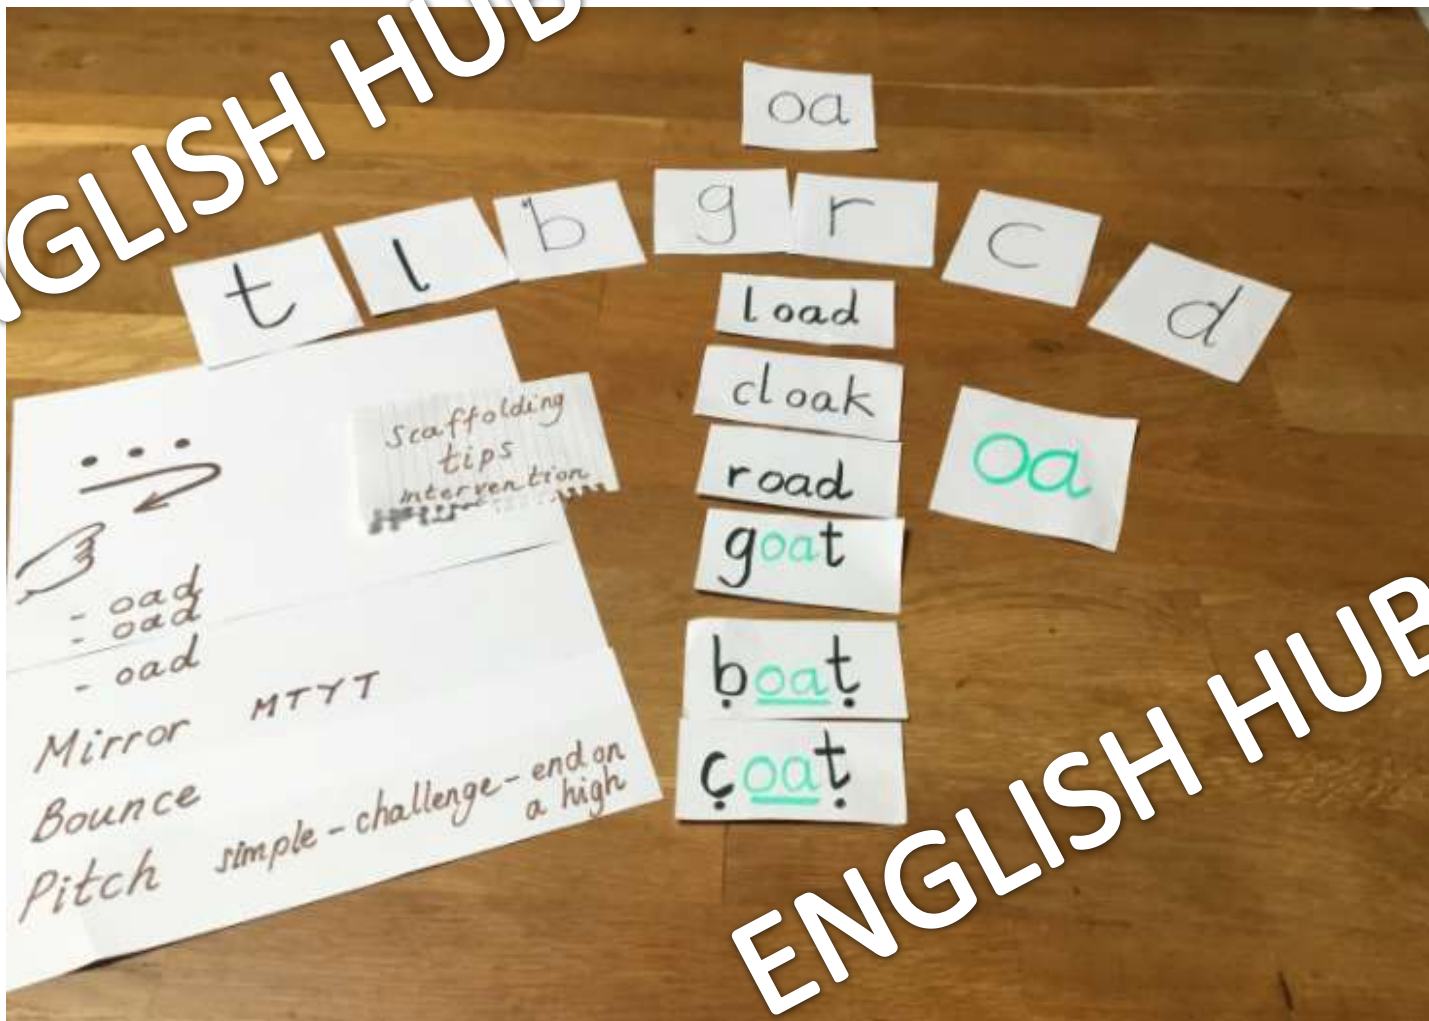 ENGLISH HUB
oa
t l b g r c d
load
cloak
road
goat
boat
coat
oa
Scaffolding
tips
intervention
- oad
- oad
- oad
Mirror MTYT
Bounce
Pitch simple - challenge - end on
a high
ENGLISH HUB